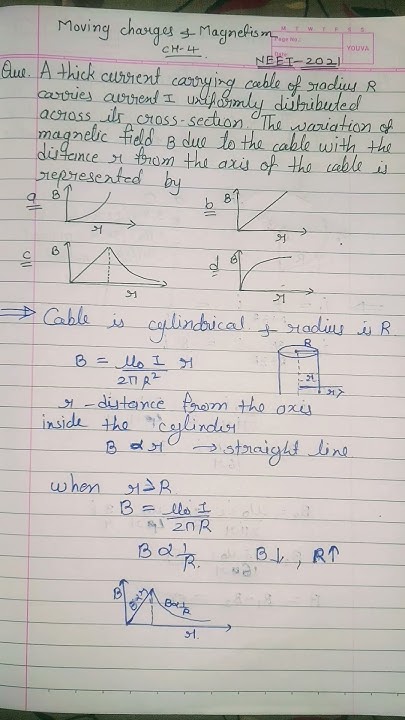 Moving charges & Magnetism
CH-4
M T W T F S S
Page No.:
Date:
YOUVA
NEET-2021
Que. A thick current carrying cable of radius R
carries current I uniformly distributed
across its cross-section. The variation of
magnetic field B due to the cable with the
distance r from the axis of the cable is
represented by
a B r
b B r
c B r
d B r
⇒ Cable is cylindrical & radius is R
B = μ₀ I r / 2πR²
R
r
r>
r - distance from the axis
inside the cylinder
B α r → straight line
when r ≥ R
B = μ₀ I / 2πR
B α 1/R. B↓, R↑
B B α r B α 1/R
r